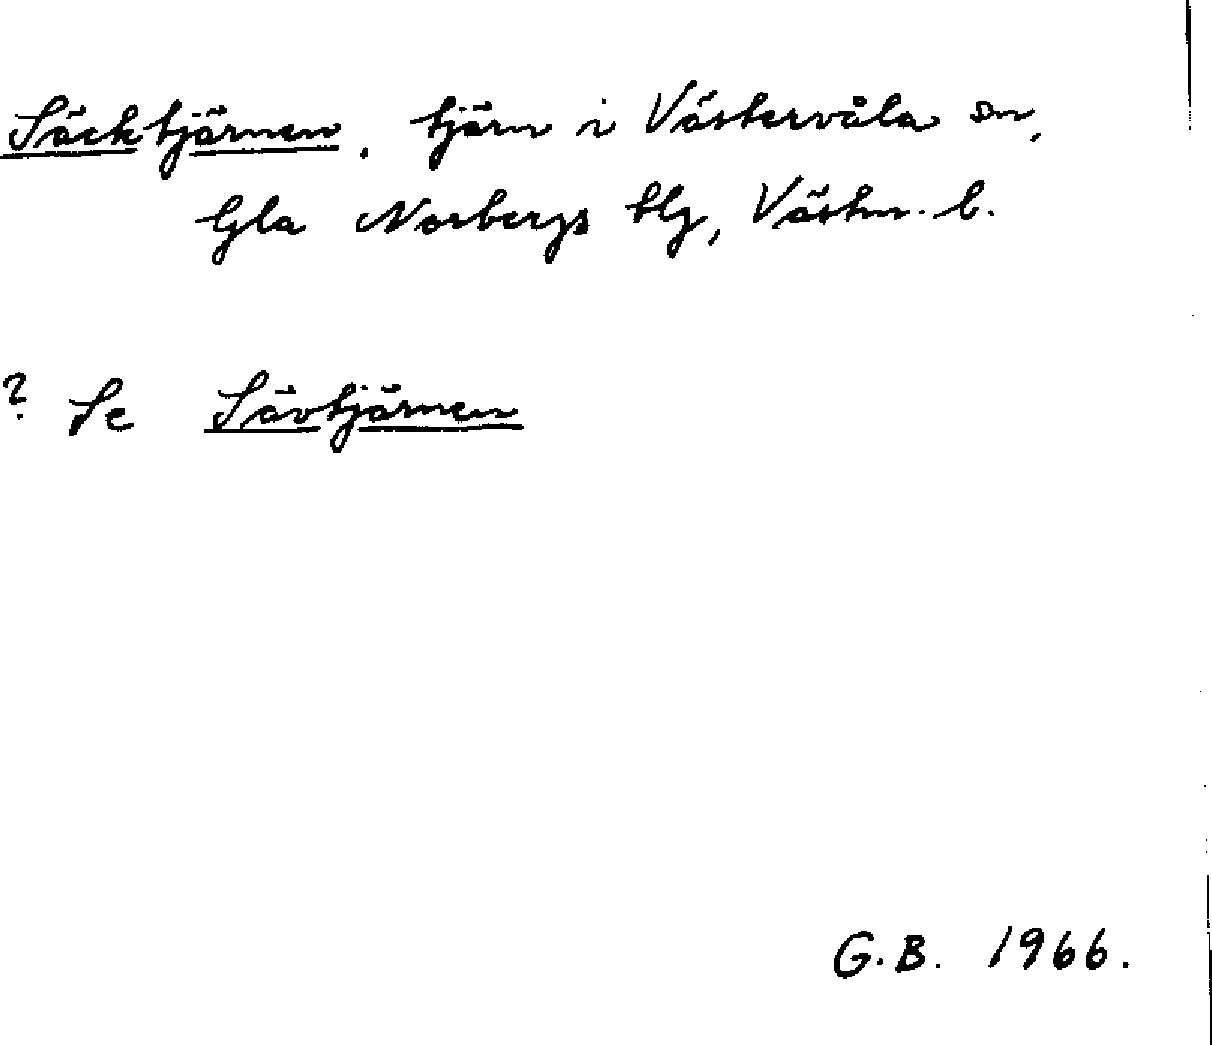 Säcktjärnen, tjärn i Västervåla sn,
Gla Norbergs blg, Västm. l.
? Se Sävtjärnen
G.B. 1966.